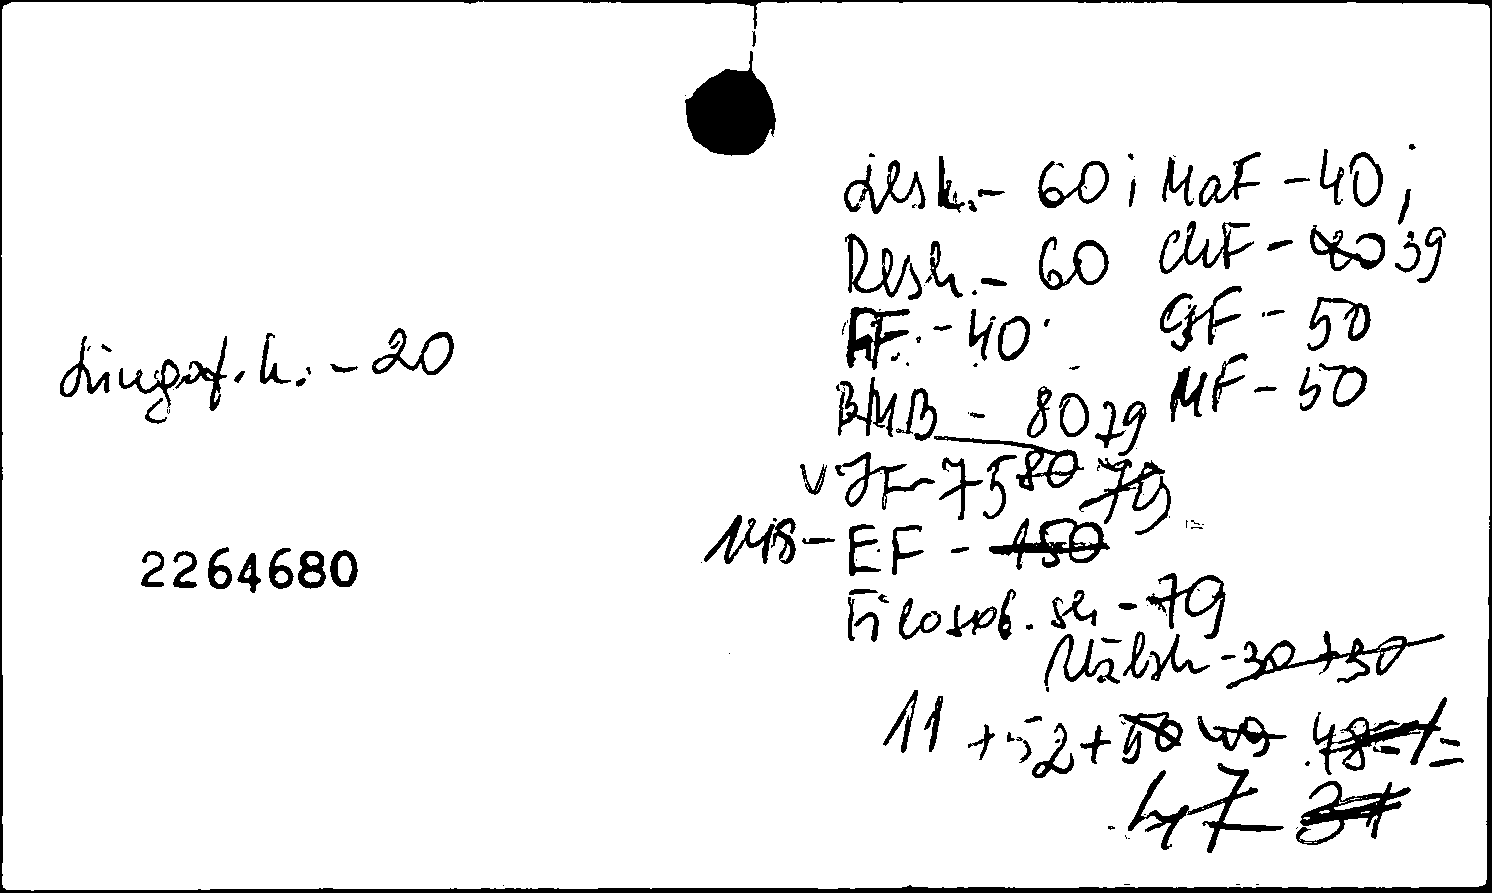 Lingaf. k. - 20
2264680
Lesk. - 60; MaF - 40;
Resh. - 60 ChF - 40 39
FF. - 40 GF - 50
BMB - 80 79 MF - 50
v JF - 75 80 79
148 - EF - 150
Filosof. sk - 79
- 30 + 50
11 + 52 + 50 49 48